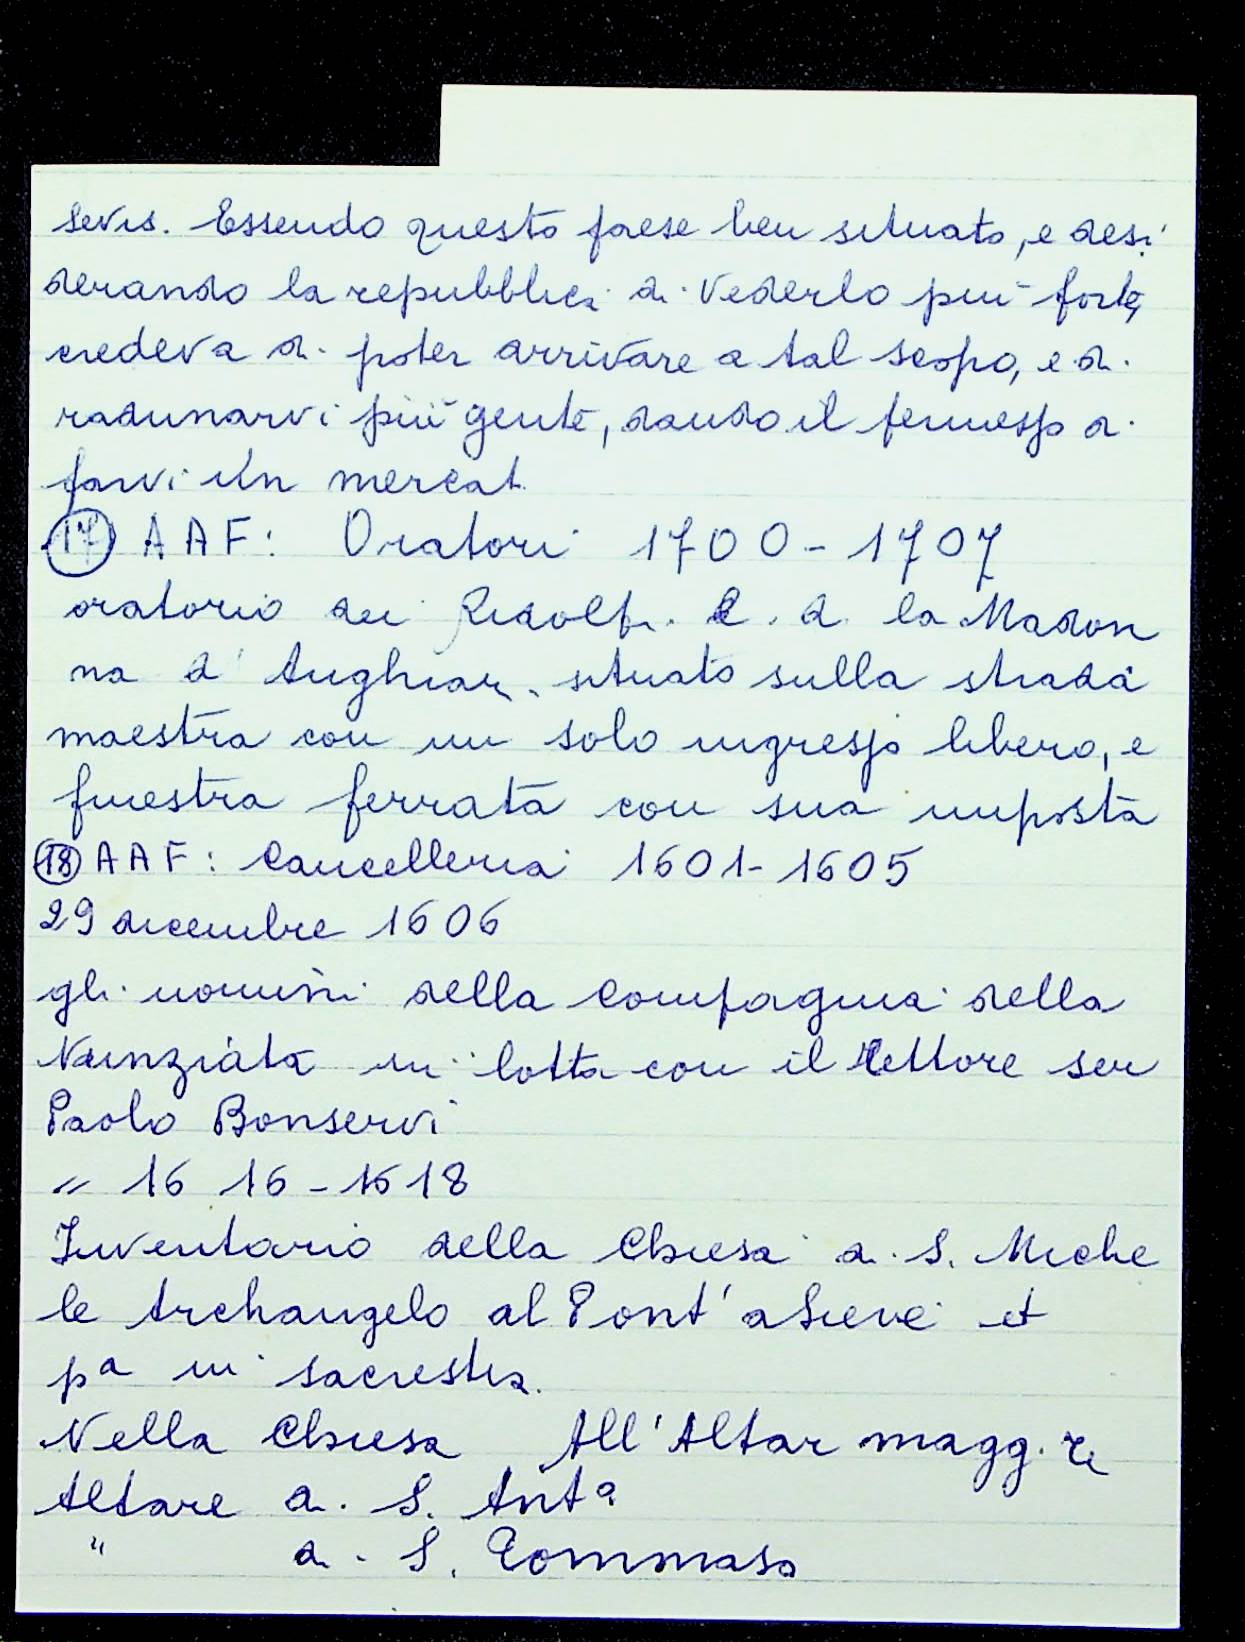 sevis. Essendo questo paese ben situato, e desi
derando la repubblica di vederlo più forte,
credeva di poter arrivare a tal scopo, e di
radunarvi più gente, dando il permesso di
farvi un mercat
17 AAF: Oratori 1700-1707
oratorio dei Ridolfi. C. di la Madon
na d'Anghiari situato sulla strada
maestra con un solo ingresso libero, e
finestra ferrata con sua imposta
18 AAF: Cancelleria 1601-1605
29 dicembre 1606
gli uomini della compagnia della
Nunziata in lotta con il rettore ser
Paolo Bonservi
" 1616-1618
Inventario della Chiesa di S. Miche
le Archangelo al Pont'a Sieve et
pa in sacrestia.
Nella Chiesa All'Altar magg. re
Altare di S. Ant°
" di S. Tommaso